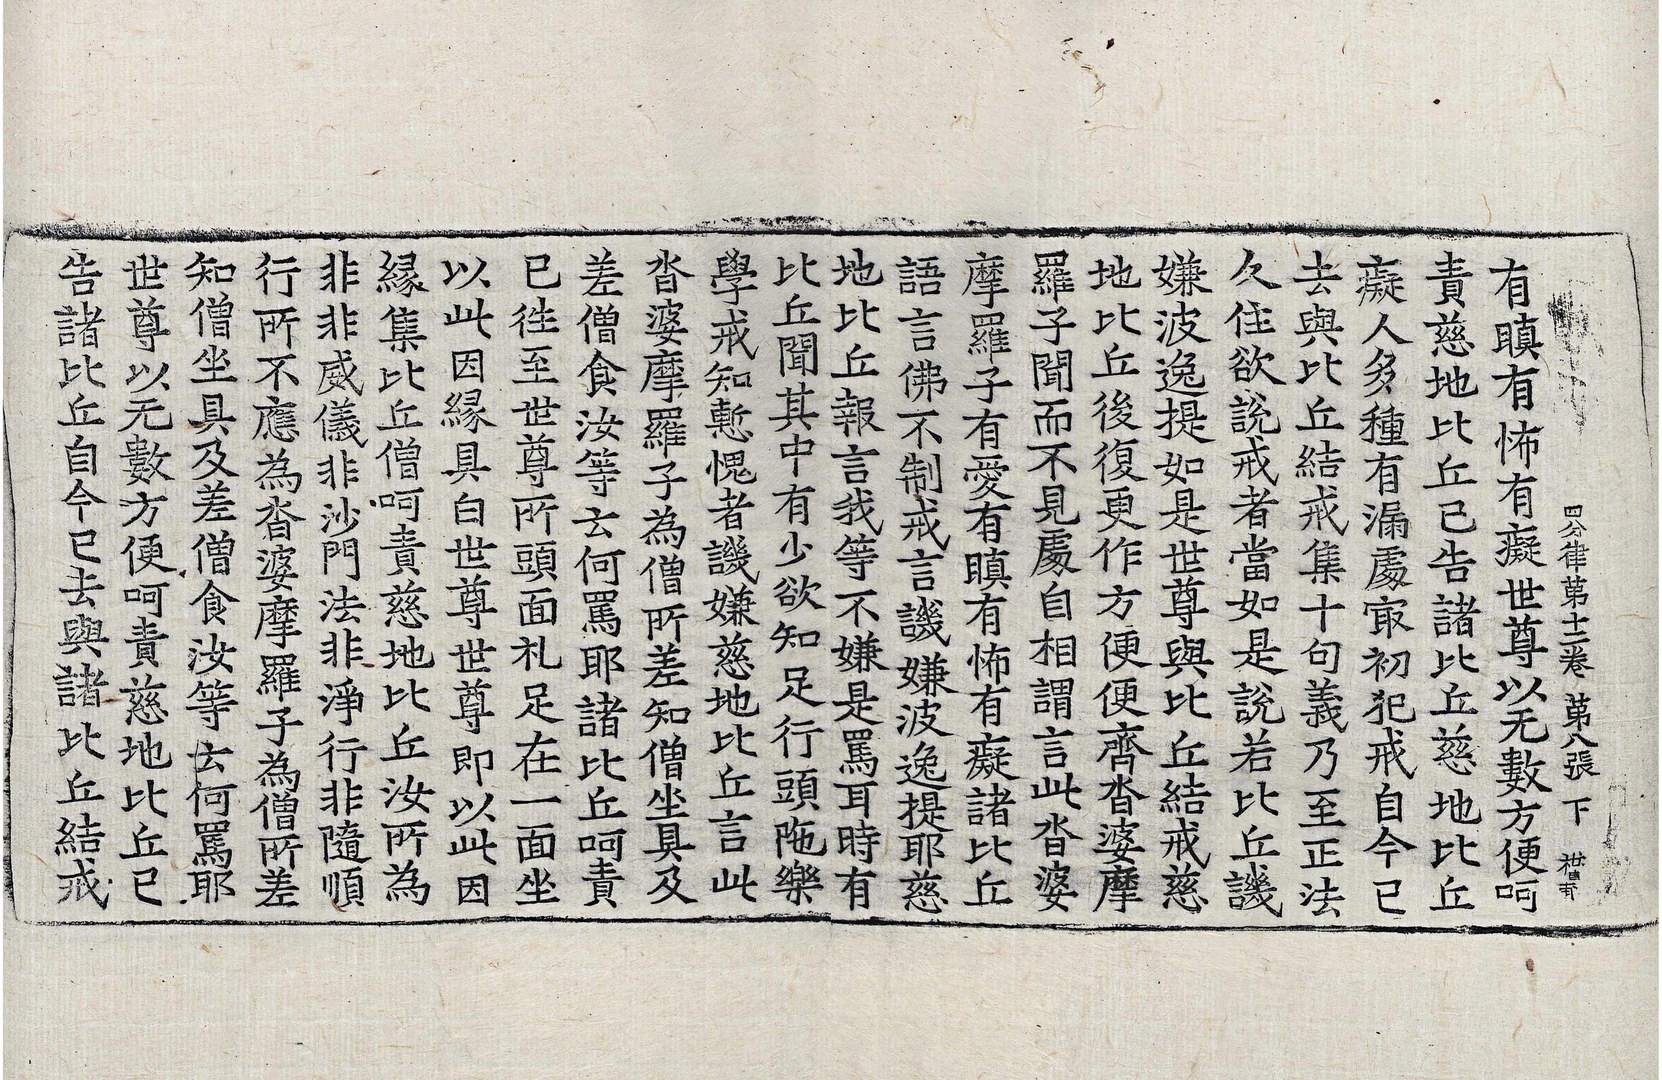 四分律苐十二卷 苐八張 下
有瞋有怖有癡世尊以无數方便呵
責慈地比丘已告諸比丘慈地比丘
癡人多種有漏處㝡初犯戒自今已
去與比丘結戒集十句義乃至正法
久住欲說戒者當如是說若比丘譏
嫌波逸提如是世尊與比丘結戒慈
地比丘後復更作方便便齊沓婆摩
羅子聞而不見處自相謂言此沓婆
摩羅子有愛有瞋有怖有癡諸比丘
語言佛不制戒言譏嫌波逸提耶慈
地比丘報言我等不嫌是罵耳時有
比丘聞其中有少欲知足行頭陁樂
學戒知慙愧者譏嫌慈地比丘言此
沓婆摩羅子為僧所差知僧坐具及
差僧食汝等云何罵耶諸比丘呵責
已徃至世尊所頭面礼足在一面坐
以此因緣具白世尊世尊即以此因
緣集比丘僧呵責慈地比丘汝所為
非非威儀非沙門法非淨行非隨順
行所不應為沓婆摩羅子為僧所差
知僧坐具及差僧食汝等云何罵耶
世尊以无數方便呵責慈地比丘已
告諸比丘自今已去與諸比丘結戒